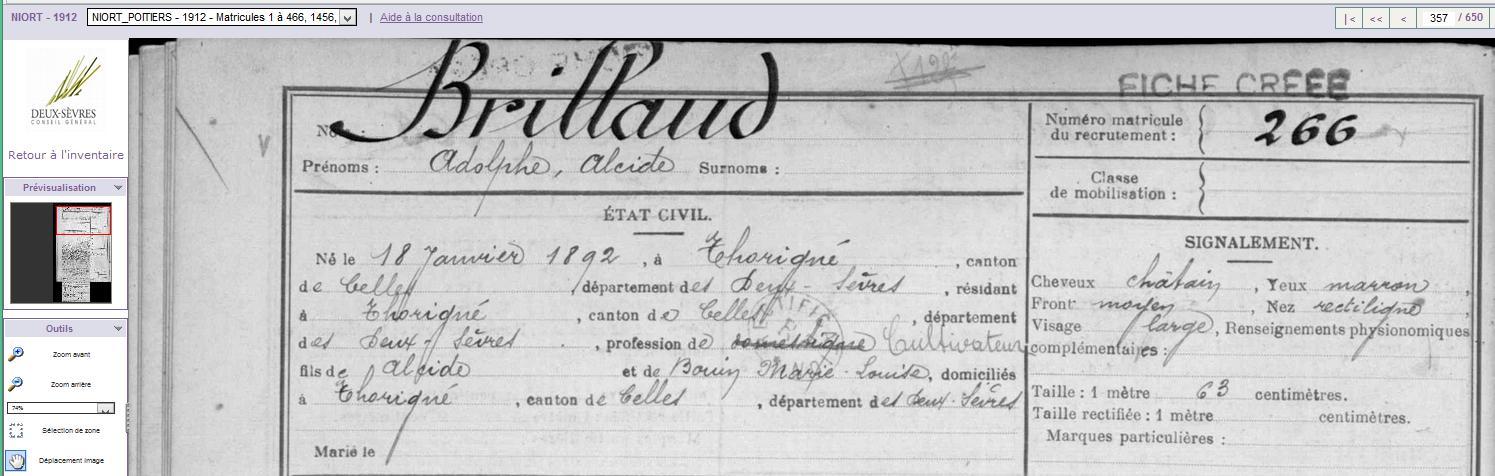 NIORT - 1912
NIORT_POITIERS - 1912 - Matricules 1 à 466, 1456,
| Aide à la consultation
|< << < 357 / 650
DEUX-SÈVRES
CONSEIL GÉNÉRAL
Retour à l'inventaire
Prévisualisation
Outils
Zoom avant
Zoom arrière
74%
Sélection de zone
Déplacement image
FICHE CRÉÉE
Brillaud
Prénoms : Adolphe, Alcide Surnoms :
Numéro matricule
du recrutement : 266
Classe
de mobilisation :
ÉTAT CIVIL.
Né le 18 Janvier 1892, à Thorigné, canton
de Celles, département des Deux-Sèvres, résidant
à Thorigné, canton de Celles, département
des Deux-Sèvres, profession de domestique Cultivateur
fils de Alcide et de Bouin Marie-Louise, domiciliés
à Thorigné, canton de Celles, département des Deux-Sèvres
Marié le
SIGNALEMENT.
Cheveux châtain, Yeux marron,
Front moyen, Nez rectiligne
Visage large, Renseignements physionomiques
complémentaires :
Taille : 1 mètre 63 centimètres.
Taille rectifiée : 1 mètre centimètres.
Marques particulières :